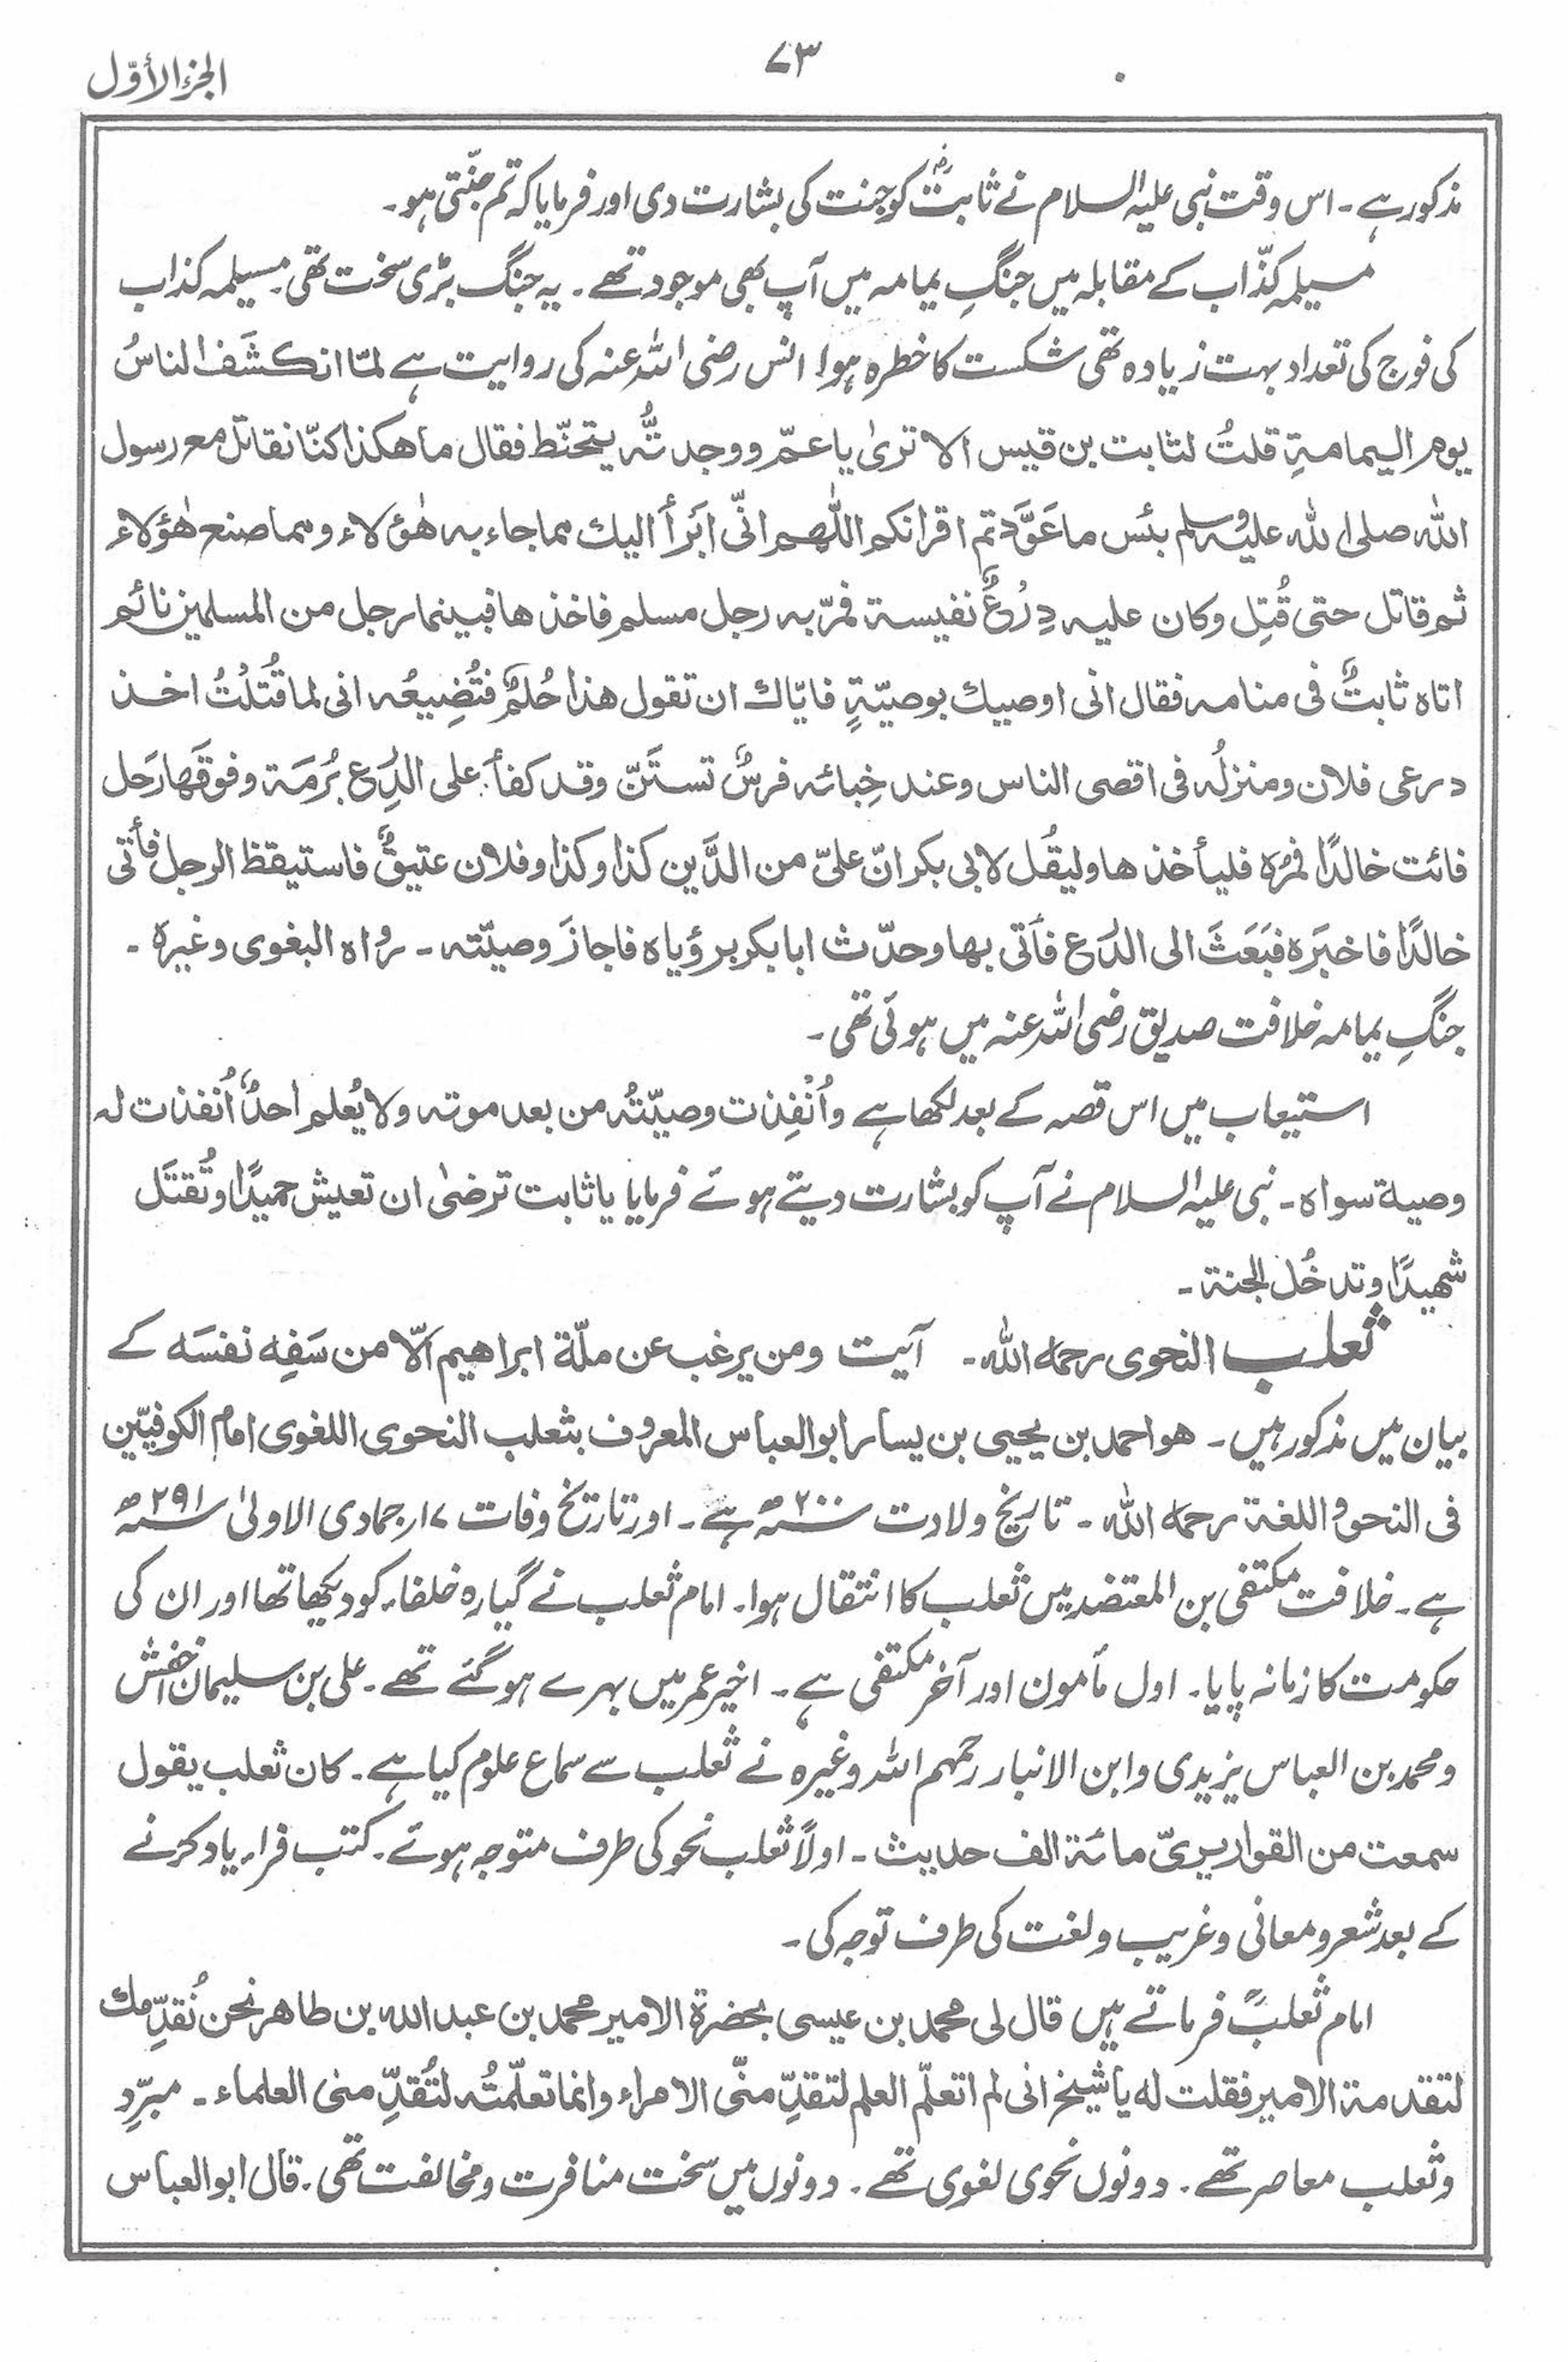 الجزء الأوّل
۷۳
مذکور ہے ۔ اس وقت نبی علیہ السلام نے ثابتؓ کو جنت کی بشارت دی اور فرمایا کہ تم جنّتی ہو۔
مسیلمہ کذّاب کے مقابلہ میں جنگِ یمامہ میں آپ بھی موجود تھے ۔ یہ جنگ بڑی سخت تھی۔ مسیلمہ کذاب
کی فوج کی تعداد بہت زیادہ تھی شکست کا خطرہ ہوا انس رضی اللہ عنہ کی روایت ہے لمّا انکشَف الناسُ
یوم الیمامۃِ قلتُ لثابت بن قیس الا تریٰ یا عمّ و وجدتُّہ یتحنّط فقال ما ھکذا کنّا نقاتل مع رسول
اللّٰہ صلی اللّٰہ علیہ وسلم بئس ما عَوَّدتم اقرانکم اللّٰھم انّی ابَرأ الیك مما جاء بہ ھٰؤلاء ومما صنع ھٰؤلاء
ثم قاتل حتی قُتِل وکان علیہ دِرْعٌ نفیسۃ فمرّ بہ رجل مسلم فاخذھا فبینما رجل من المسلمین نائم
اتاہ ثابتٌ فی منامہ فقال انی اوصیك بوصیّۃٍ فایّاك ان تقول ھذا حُلمٌ فتُضِیعُہ انی لما قُتلتُ اخذ
درعی فلان ومنزلُہ فی اقصی الناس وعند خِبائہ فرسٌ تستَنّ وقد کفأَ علی الدِرع بُرمَۃ وفوقَھا رَحل
فائت خالدًا فمرُہ فلیأخذھا ولیقُل لابی بکر انّ علیّ من الدَّین کذا وکذا وفلان عتیقٌ فاستیقظ الرجل فأتی
خالدًا فاخبَرہ فبَعَثَ الی الدرع فأتی بھا وحدّث ابابکر برؤیاہ فاجازَ وصیّتہ ۔ رواہ البغوی وغیرہ ۔
جنگِ یمامہ خلافت صدیق رضی اللہ عنہ میں ہوئی تھی ۔
استیعاب میں اس قصہ کے بعد لکھا ہے وأُنْفِذت وصیّتُہ من بعد موتہ ولا یُعلم احدٌ أُنفذت لہ
وصیۃ سواہ ۔ نبی علیہ السلام نے آپ کو بشارت دیتے ہوئے فرمایا یا ثابت ترضیٰ ان تعیش حمیدًا وتُقتَل
شھیدًا وتدخُل الجنۃ ۔
ثعلب النحوی رحمہ اللّٰہ ۔ آیت ومن یرغب عن ملّۃ ابراھیم الّا من سَفِہ نفسَہ کے
بیان میں مذکور ہیں ۔ ھو احمد بن یحیی بن یسار ابو العباس المعروف بثعلب النحوی اللغوی امام الکوفیّین
فی النحو و اللغۃ رحمہ اللّٰہ ۔ تاریخ ولادت سنہ ۲۰۰ھ ہے ۔ اور تاریخ وفات ۱۷ جمادی الاولیٰ سنہ ۲۹۱ھ
ہے ۔ خلافت مکتفی بن المعتضد میں ثعلب کا انتقال ہوا ۔ امام ثعلب نے گیارہ خلفاء کو دیکھا تھا اور ان کی
حکومت کا زمانہ پایا ۔ اول مأمون اور آخر مکتفی ہے ۔ اخیر عمر میں بہرے ہوگئے تھے ۔ علی بن سلیمان اخفش
و محمد بن العباس یزیدی وابن الانبار رحمہم اللہ وغیرہ نے ثعلب سے سماع علوم کیا ہے ۔ کان ثعلب یقول
سمعت من القواریریّ مائۃ الف حدیث ۔ اولاً ثعلب نحو کی طرف متوجہ ہوئے ۔ کتب فراء یاد کرنے
کے بعد شعر و معانی و غریب و لغت کی طرف توجہ کی ۔
امام ثعلبؒ فرماتے ہیں قال لی محمد بن عیسی بحضرۃ الامیر محمد بن عبد اللہ بن طاھر نحن نُقدِّمك
لتقدمۃ الامیر فقلت لہ یا شیخ انی لم اتعلّم العلم لتقدِّمنّی الامراء وانما تعلّمتُہ لتُقدِّمنی العلماء ۔ مبرِّد
و ثعلب معاصر تھے ۔ دونوں نحوی لغوی تھے ۔ دونوں میں سخت منافرت و مخالفت تھی ۔ قال ابو العباس